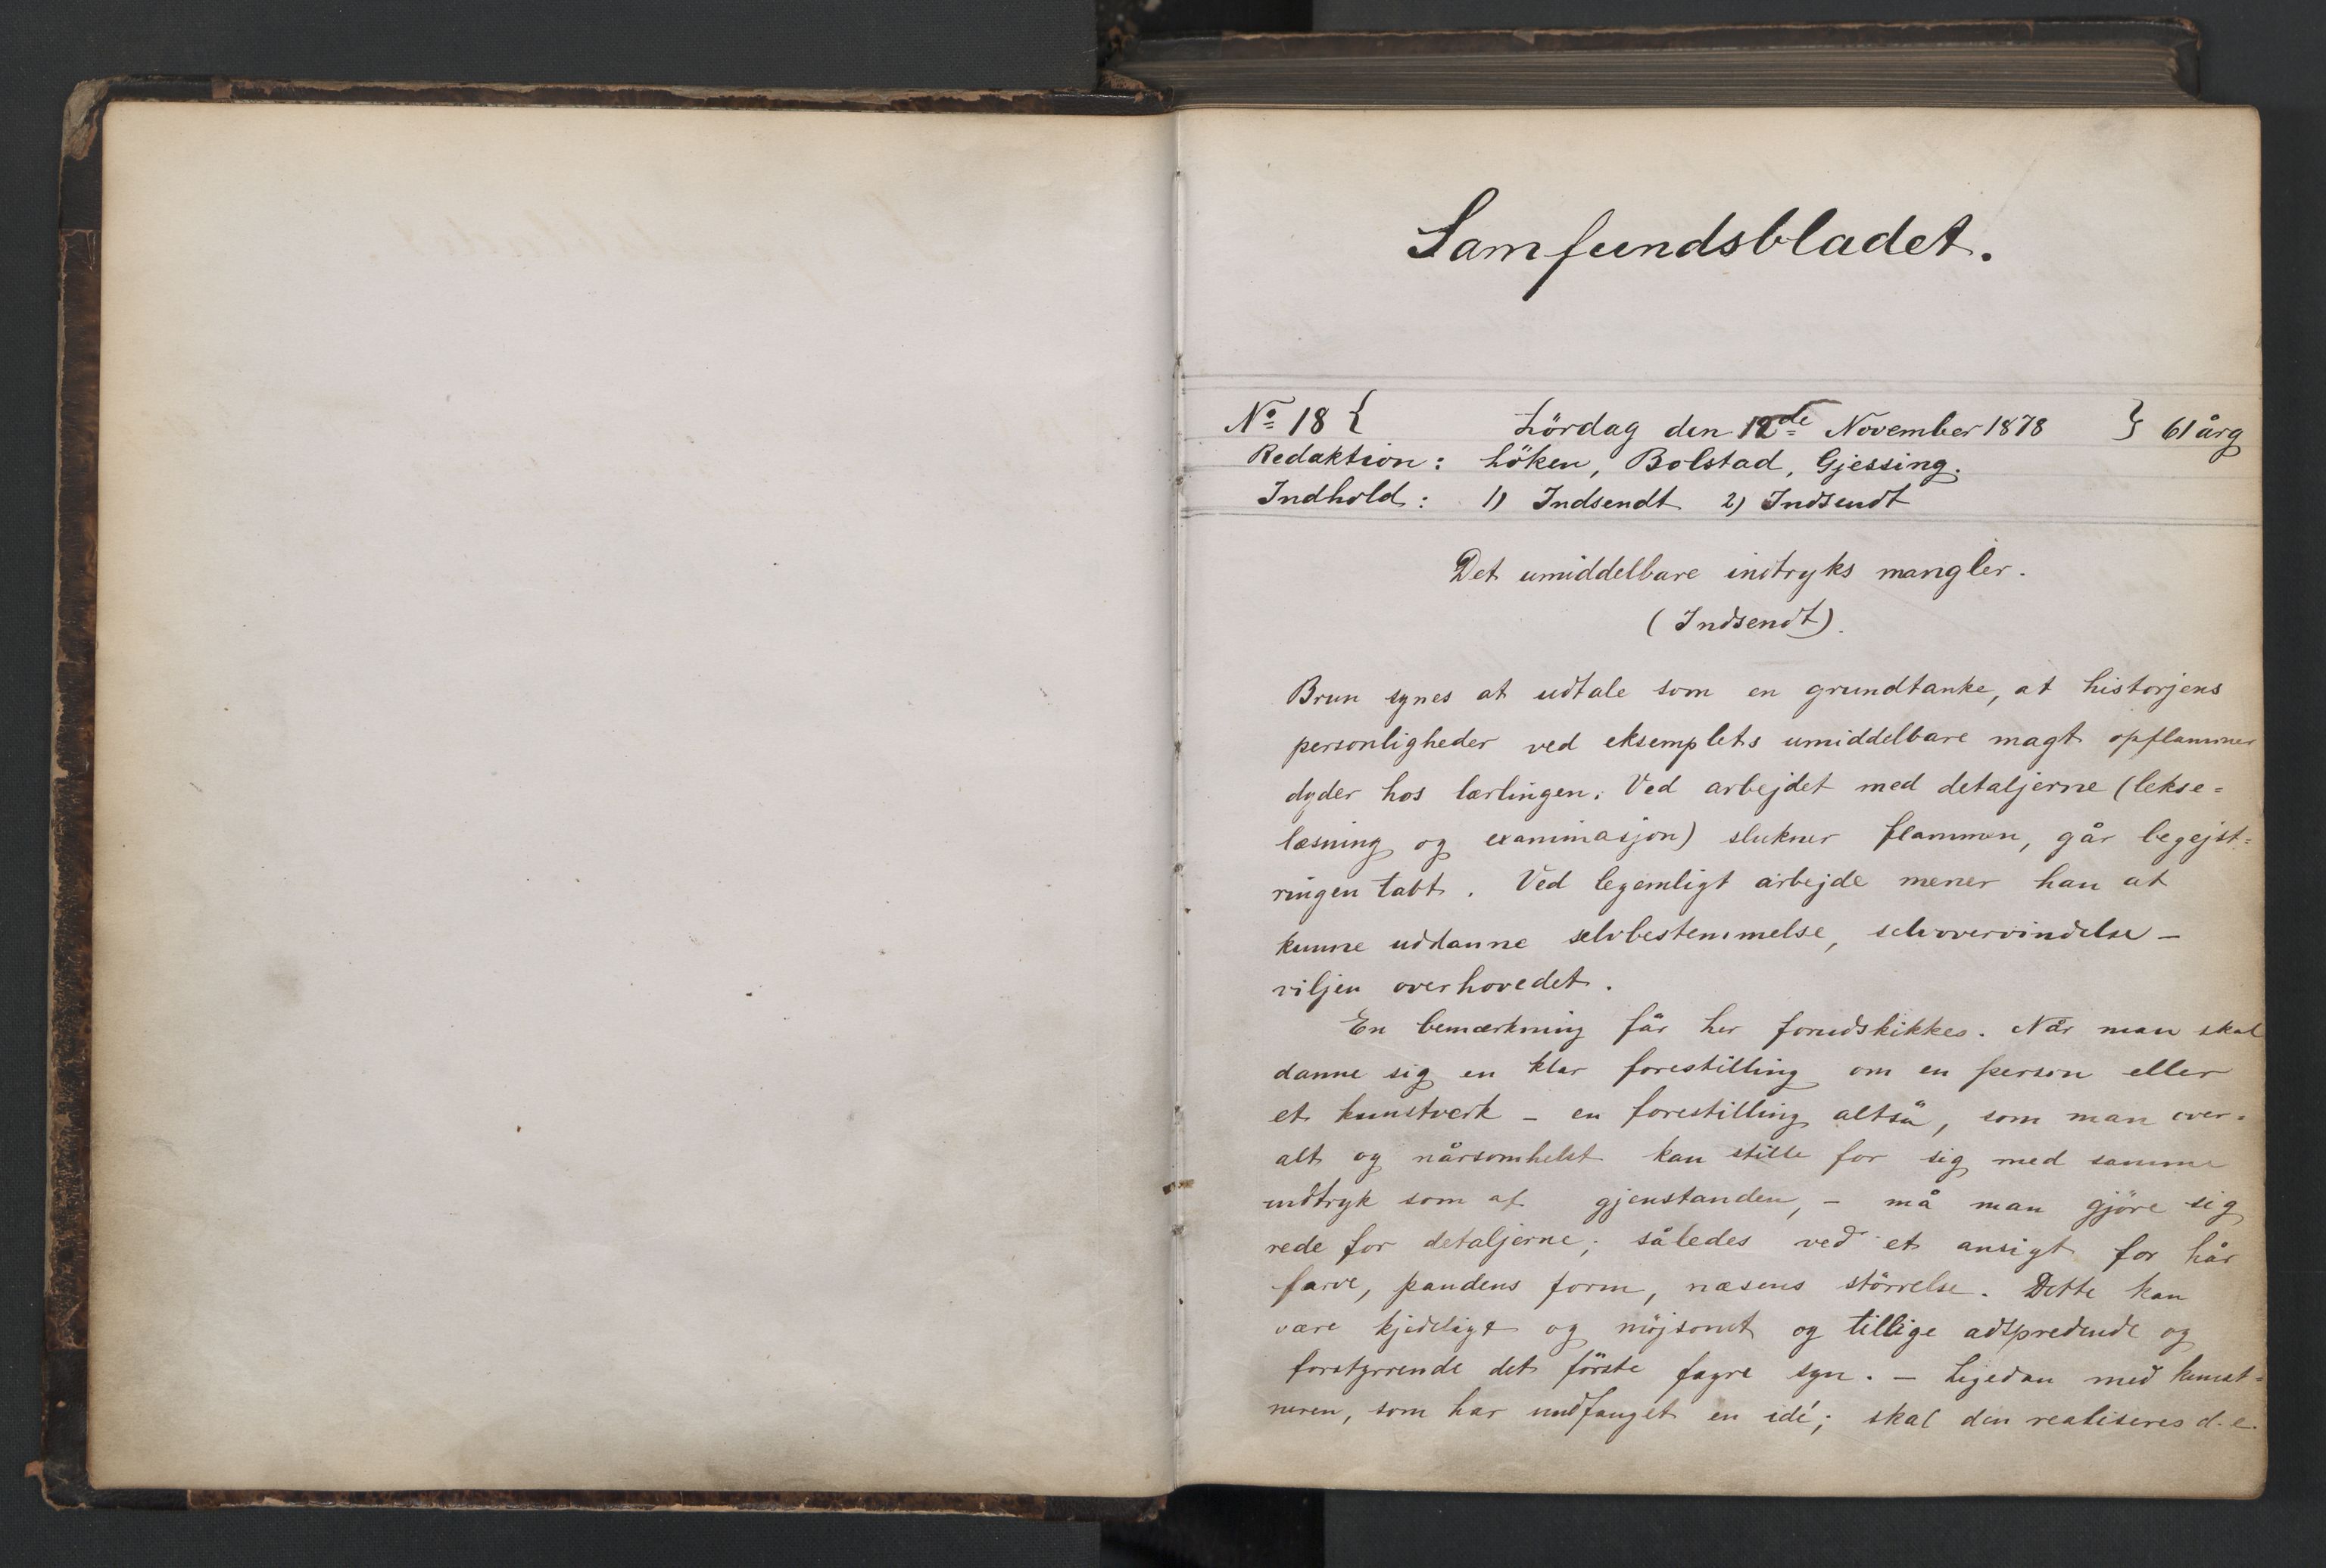 Samfundsbladet.
No 18 { Lördag den 12de November 1878 } 61 årg
Redaktion: Löken, Bolstad, Gjessing.
Indhold: 1) Indsendt 2) Indsendt
Det umiddelbare indtryks mangler.
(Indsendt).
Brun synes at udtale som en grundtanke, at historjens
personligheder ved eksemplets umiddelbare magt opflammer
dyder hos lærlingen. Ved arbejdet med detaljerne (lekse=
læsning og examinasjon) slukner flammen, går begejst=
ringen tabt. Ved legemligt arbejde mener han at
kunne uddanne selvbestemmelse, selvovervindelse –
viljen overhovedet.
En bemærkning får her forudskikkes. Når man skal
danne sig en klar forestilling om en person eller
et kunstverk – en forestilling altså, som man over=
alt og nårsomhelst kan stille for sig med samme
indtryk som af gjenstanden, – må man gjöre sig
rede for detaljerne; således ved et ansigt for hår
farve, pandens form, næsens störrelse. Dette kan
være kjedeligt og möjsomt og tillige adspredende og
forstyrrende det förste fagre syn. – Ligedan med kunst=
neren, som har undfanget en idé; skal den realiseres d. e.